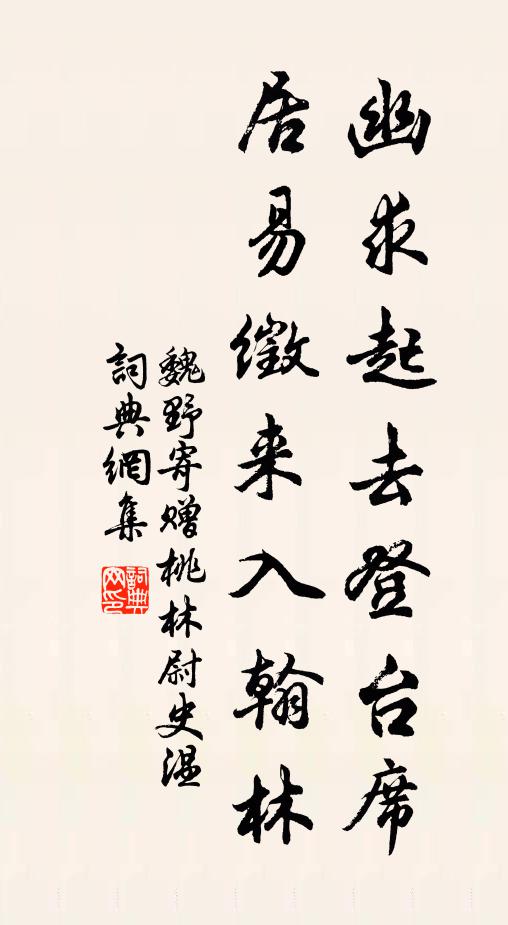 幽求起去登台席
居易徵来入翰林
魏野寄赠桃林尉史温
詞典網集
詞典
网印